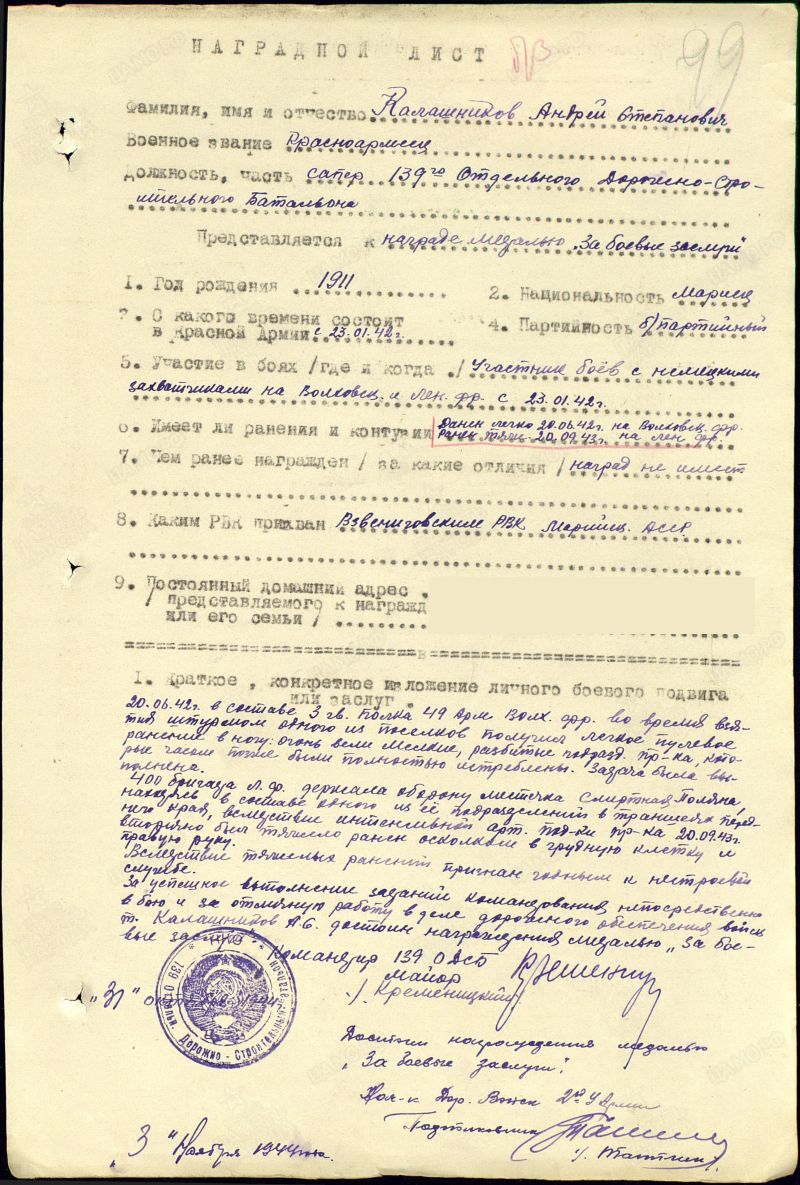 НАГРАДНОЙ ЛИСТ
99
Фамилия, имя и отчество Калашников Андрей Степанович
Военное звание Красноармеец
Должность, часть сапер 139го Отдельного Дорожно-Стро-
ительного Батальона
Представляется к награде медалью „За боевые заслуги"
1. Год рождения 1911
2. Национальность Мариец
3. С какого времени состоит
в Красной Армии с 23.01.42г.
4. Партийность б/партийный
5. Участие в боях /где и когда / Участник боёв с немецкими
захватчиками на Волховск. и Лен. фр. с 23.01.42г.
6. Имеет ли ранения и контузии Ранен легко 20.06.42г. на Волховск. фр.
Ранен тяж. 20.09.43г. на лен фр.
7. Чем ранее награжден / за какие отличия / наград не имеет
8. Каким РВК призван Звениговским РВК Марийск. АССР
9. Постоянный домашний адрес
/ представляемого к награжд
или его семьи /
1. Краткое, конкретное изложение личного боевого подвига
или заслуг.
20.06.42г. в составе 3 гв. полка 49 арм Волх. фр. во время взя-
тия штурмом одного из поселков получил легкое пулевое
ранение в ногу. огонь вели мелкие, разбитые подразд. пр-ка, кото-
рые часом позже были полностью истреблены. Задача была вы-
полнена.
400 бригада Л.ф. держала оборону местечка Смертная Поляна,
находясь в составе одного из её подразделений в траншеях перед-
него края, вследствие интенсивной арт. под-ки пр-ка 20.09.43г
вторично был тяжело ранен осколком в грудную клетку и
правую руку.
Вследствие тяжелых ранений признан годным к нестроевой
службе.
За успешное выполнение заданий командования непосредственно
в бою и за отличную работу в деле дорожного обеспечения войск
т. Калашников А.С. достоин награждения медалью „За бое-
вые заслуги".
Командир 139 ОДСБ
майор
/. Кременицкий/
„31" октября 1944
НКО
139 Отдельн. Дорожно - Строительный
Достоин награждения медалью
„За боевые заслуги".
Нач-к Дор. Войск 2й У Армии
Подполковник
„3" Ноября 1944 года.